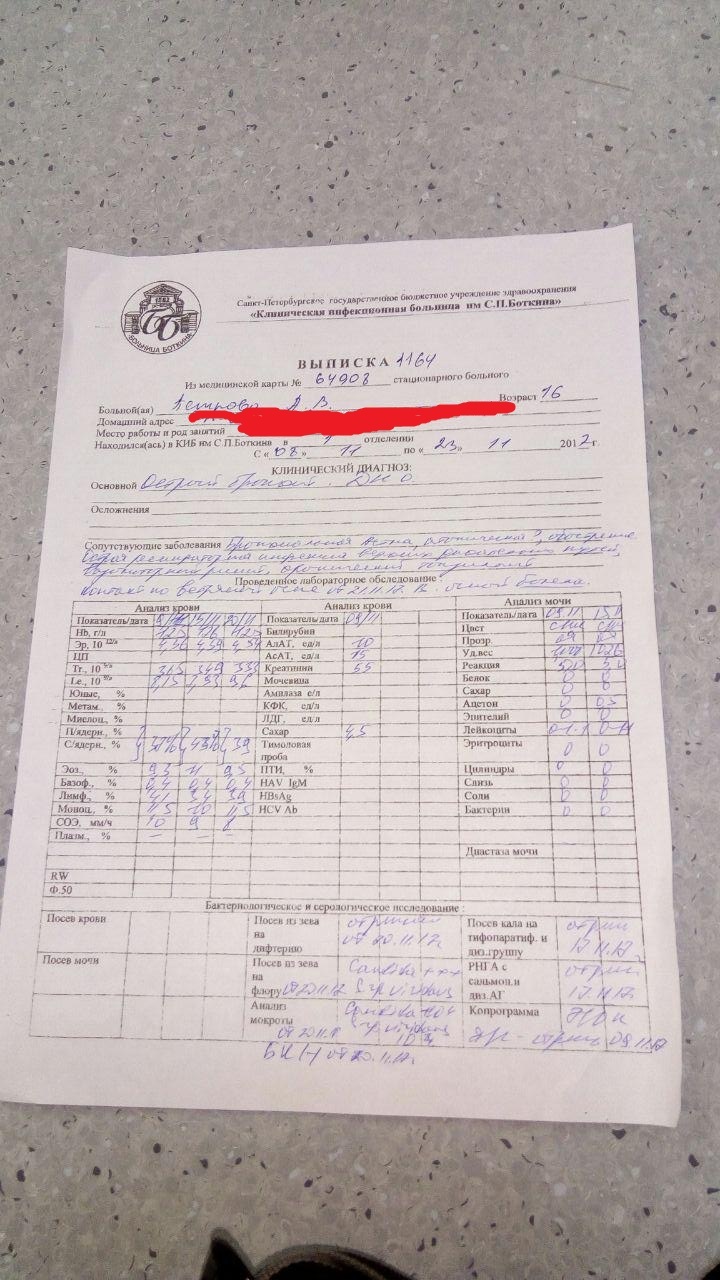 Санкт-Петербургское государственное бюджетное учреждение здравоохранения
«Клиническая инфекционная больница им С.П.Боткина»
1882
БОЛЬНИЦА БОТКИНА
ВЫПИСКА 1164
Из медицинской карты № 64908 стационарного больного
Больной(ая) А.В. Возраст 16
Домашний адрес
Место работы и род занятий
Находился(ась) в КИБ им С.П.Боткина в отделении
С «08» 11 по «23» 11 2017 г.
КЛИНИЧЕСКИЙ ДИАГНОЗ:
Основной Острый бронхит. ДН 0.
Осложнения
Сопутствующие заболевания Бронхиальная астма, атопическая ?, обострение.
Острая респираторная инфекция верхних дыхательных путей,
ринит, хронический
Проведенное лабораторное обследование:
Контакт по ветряной оспе от 21.11.17.
Анализ крови Анализ крови Анализ мочи
Показатель/дата 15/11 20/11 Показатель/дата 09/11 Показатель/дата 09.11 15.11
Hb, г/л 125 126 125 Билирубин Цвет
Эр, 10 12/л 4,56 4,59 4,54 АлАТ, ед/л 10 Прозр.
ЦП АсАТ, ед/л 15 Уд.вес 1026
Тг., 10 9/л 349 333 Креатинин 55 Реакция 5,0
Le., 10 9/л Мочевина Белок 0 0
Юные, % Амилаза е/л Сахар 0 0
Метам., % КФК, ед/л Ацетон 0 0,5
Миелоц., % ЛДГ, ед/л Эпителий 0 0
П/ядерн., % Сахар 4,5 Лейкоциты 0-1-1
С/ядерн., % 37% 43% 39 Тимоловая проба Эритроциты 0 0
Эоз., % 9,3 11 9,5 ПТИ, % Цилиндры 0 0
Базоф., % 0,4 0,4 0,4 HAV IgM Слизь 0 0
Лимф., % 41 34 39 HBsAg Соли 0 0
Моноц., % 11,5 10 11,5 HCV Ab Бактерии 0 0
СОЭ, мм/ч 10 9 8
Плазм., % — — —
Диастаза мочи
RW
Ф.50
Бактериологическое и серологическое исследование :
Посев крови Посев из зева на дифтерию от 20.11.17г Посев кала на тифопаратиф. и диз.группу отриц 17.11.17г.
Посев мочи Посев из зева на флору от 20.11.17 Candida +++ S.pr viridans РНГА с сальмон.и диз.АГ отриц 17.11.17г
Анализ мокроты от 20.11.17 Candida viridans Копрограмма
отриц 09.11.17
БК (-) от 20.11.17г.